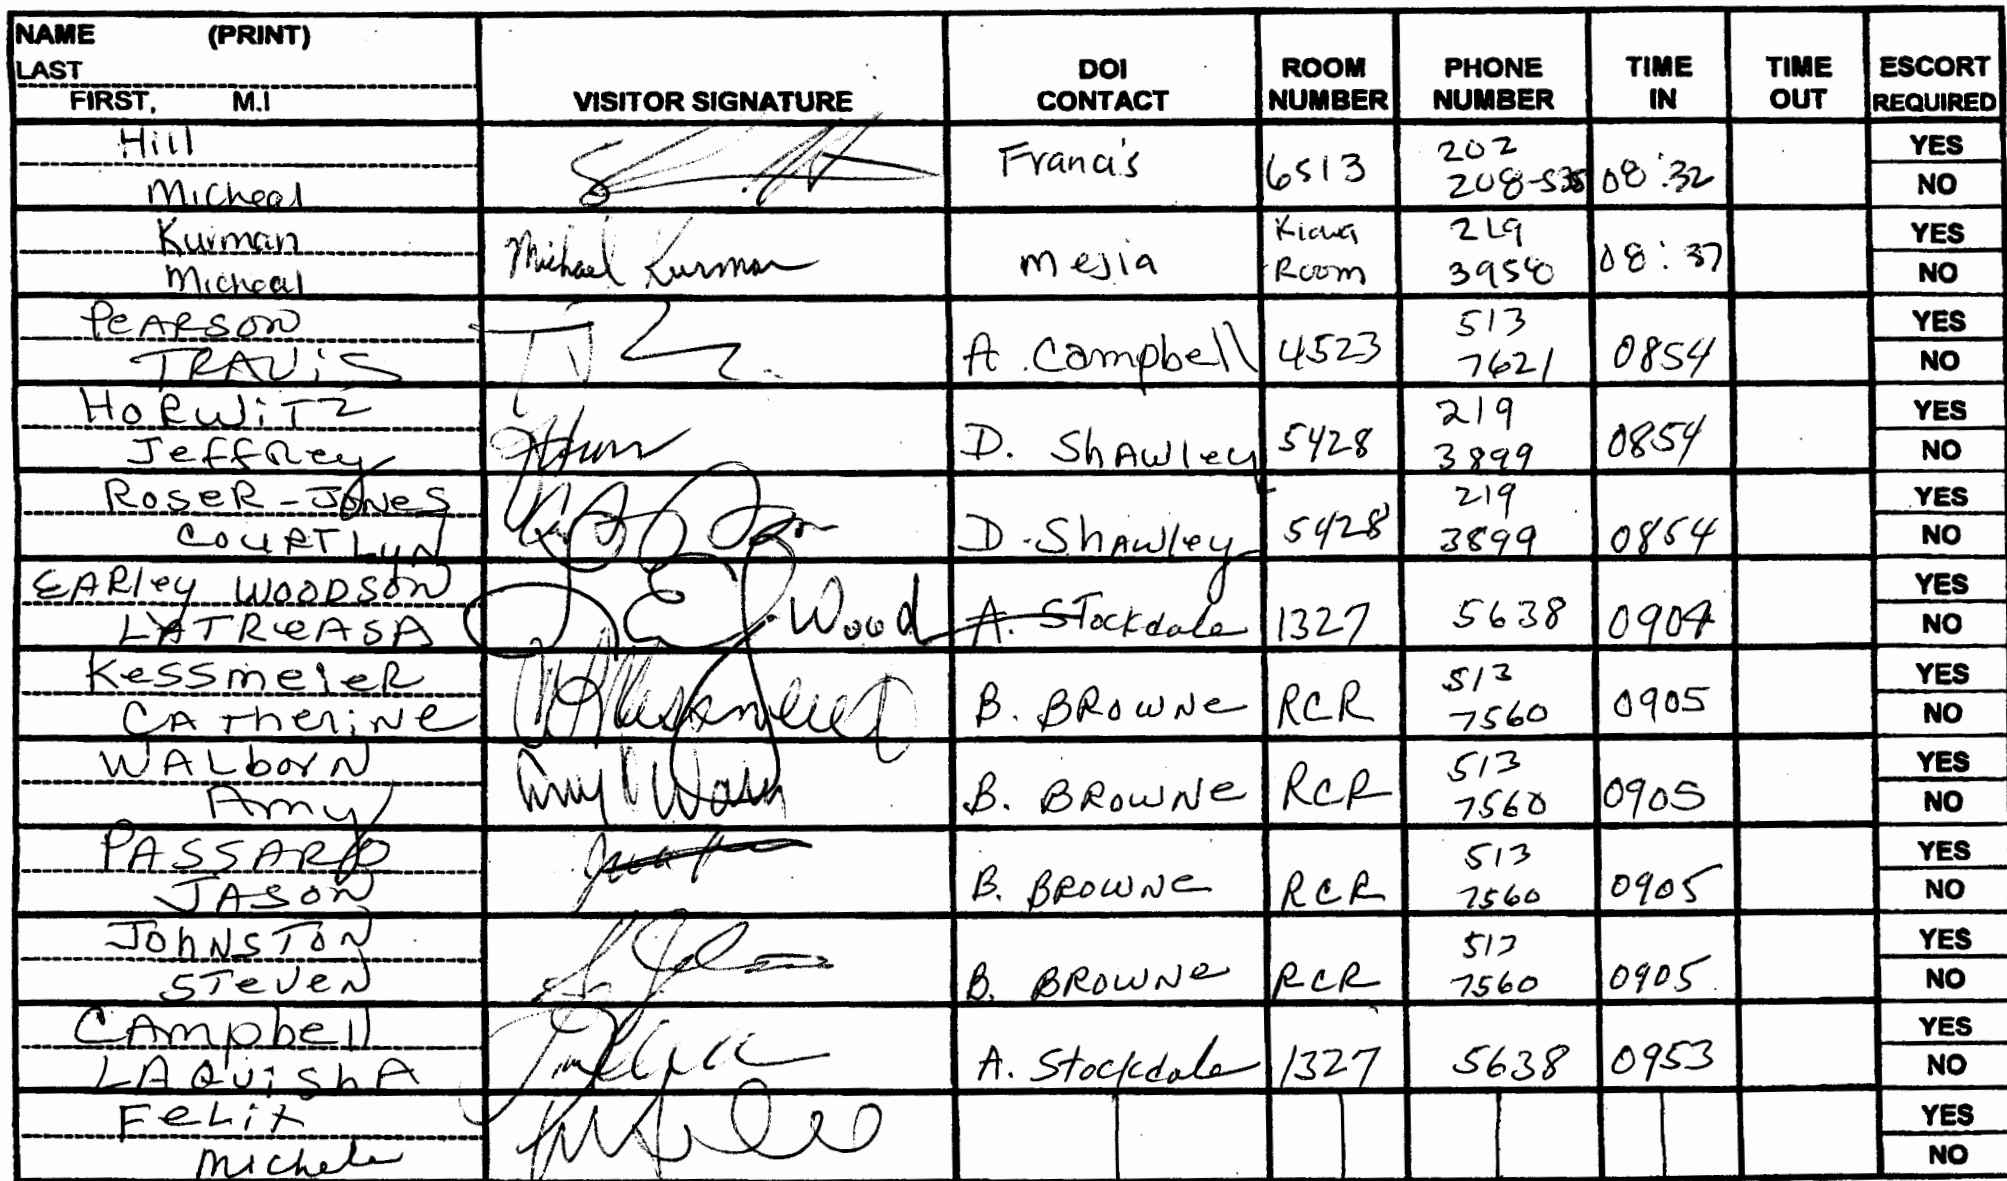 NAME (PRINT)
LAST
FIRST, M.I
VISITOR SIGNATURE
DOI
CONTACT
ROOM
NUMBER
PHONE
NUMBER
TIME
IN
TIME
OUT
ESCORT
REQUIRED
Hill
Micheal
Francis
6513
202
208-535
08:32
YES
NO
Kurman
Micheal
Michael Kurman
Mejia
Kiowa
Room
219
3958
08:37
YES
NO
PEARSON
TRAVIS
A. Campbell
4523
513
7621
0854
YES
NO
HORWITZ
Jeffrey
D. Shawley
5428
219
3899
0854
YES
NO
ROSER-JONES
COURTLYN
D. Shawley
5428
219
3899
0854
YES
NO
EARLEY WOODSON
LATREASA
Wood
A. Stockdale
1327
5638
0904
YES
NO
KESSMEIER
CATHERINE
B. BROWNE
RCR
513
7560
0905
YES
NO
WALBORN
Amy
B. BROWNE
RCR
513
7560
0905
YES
NO
PASSARO
JASON
B. BROWNE
RCR
513
7560
0905
YES
NO
JOHNSTON
STEVEN
B. BROWNE
RCR
513
7560
0905
YES
NO
CAMPBELL
LAQUISHA
A. Stockdale
1327
5638
0953
YES
NO
FELIX
Michele
YES
NO